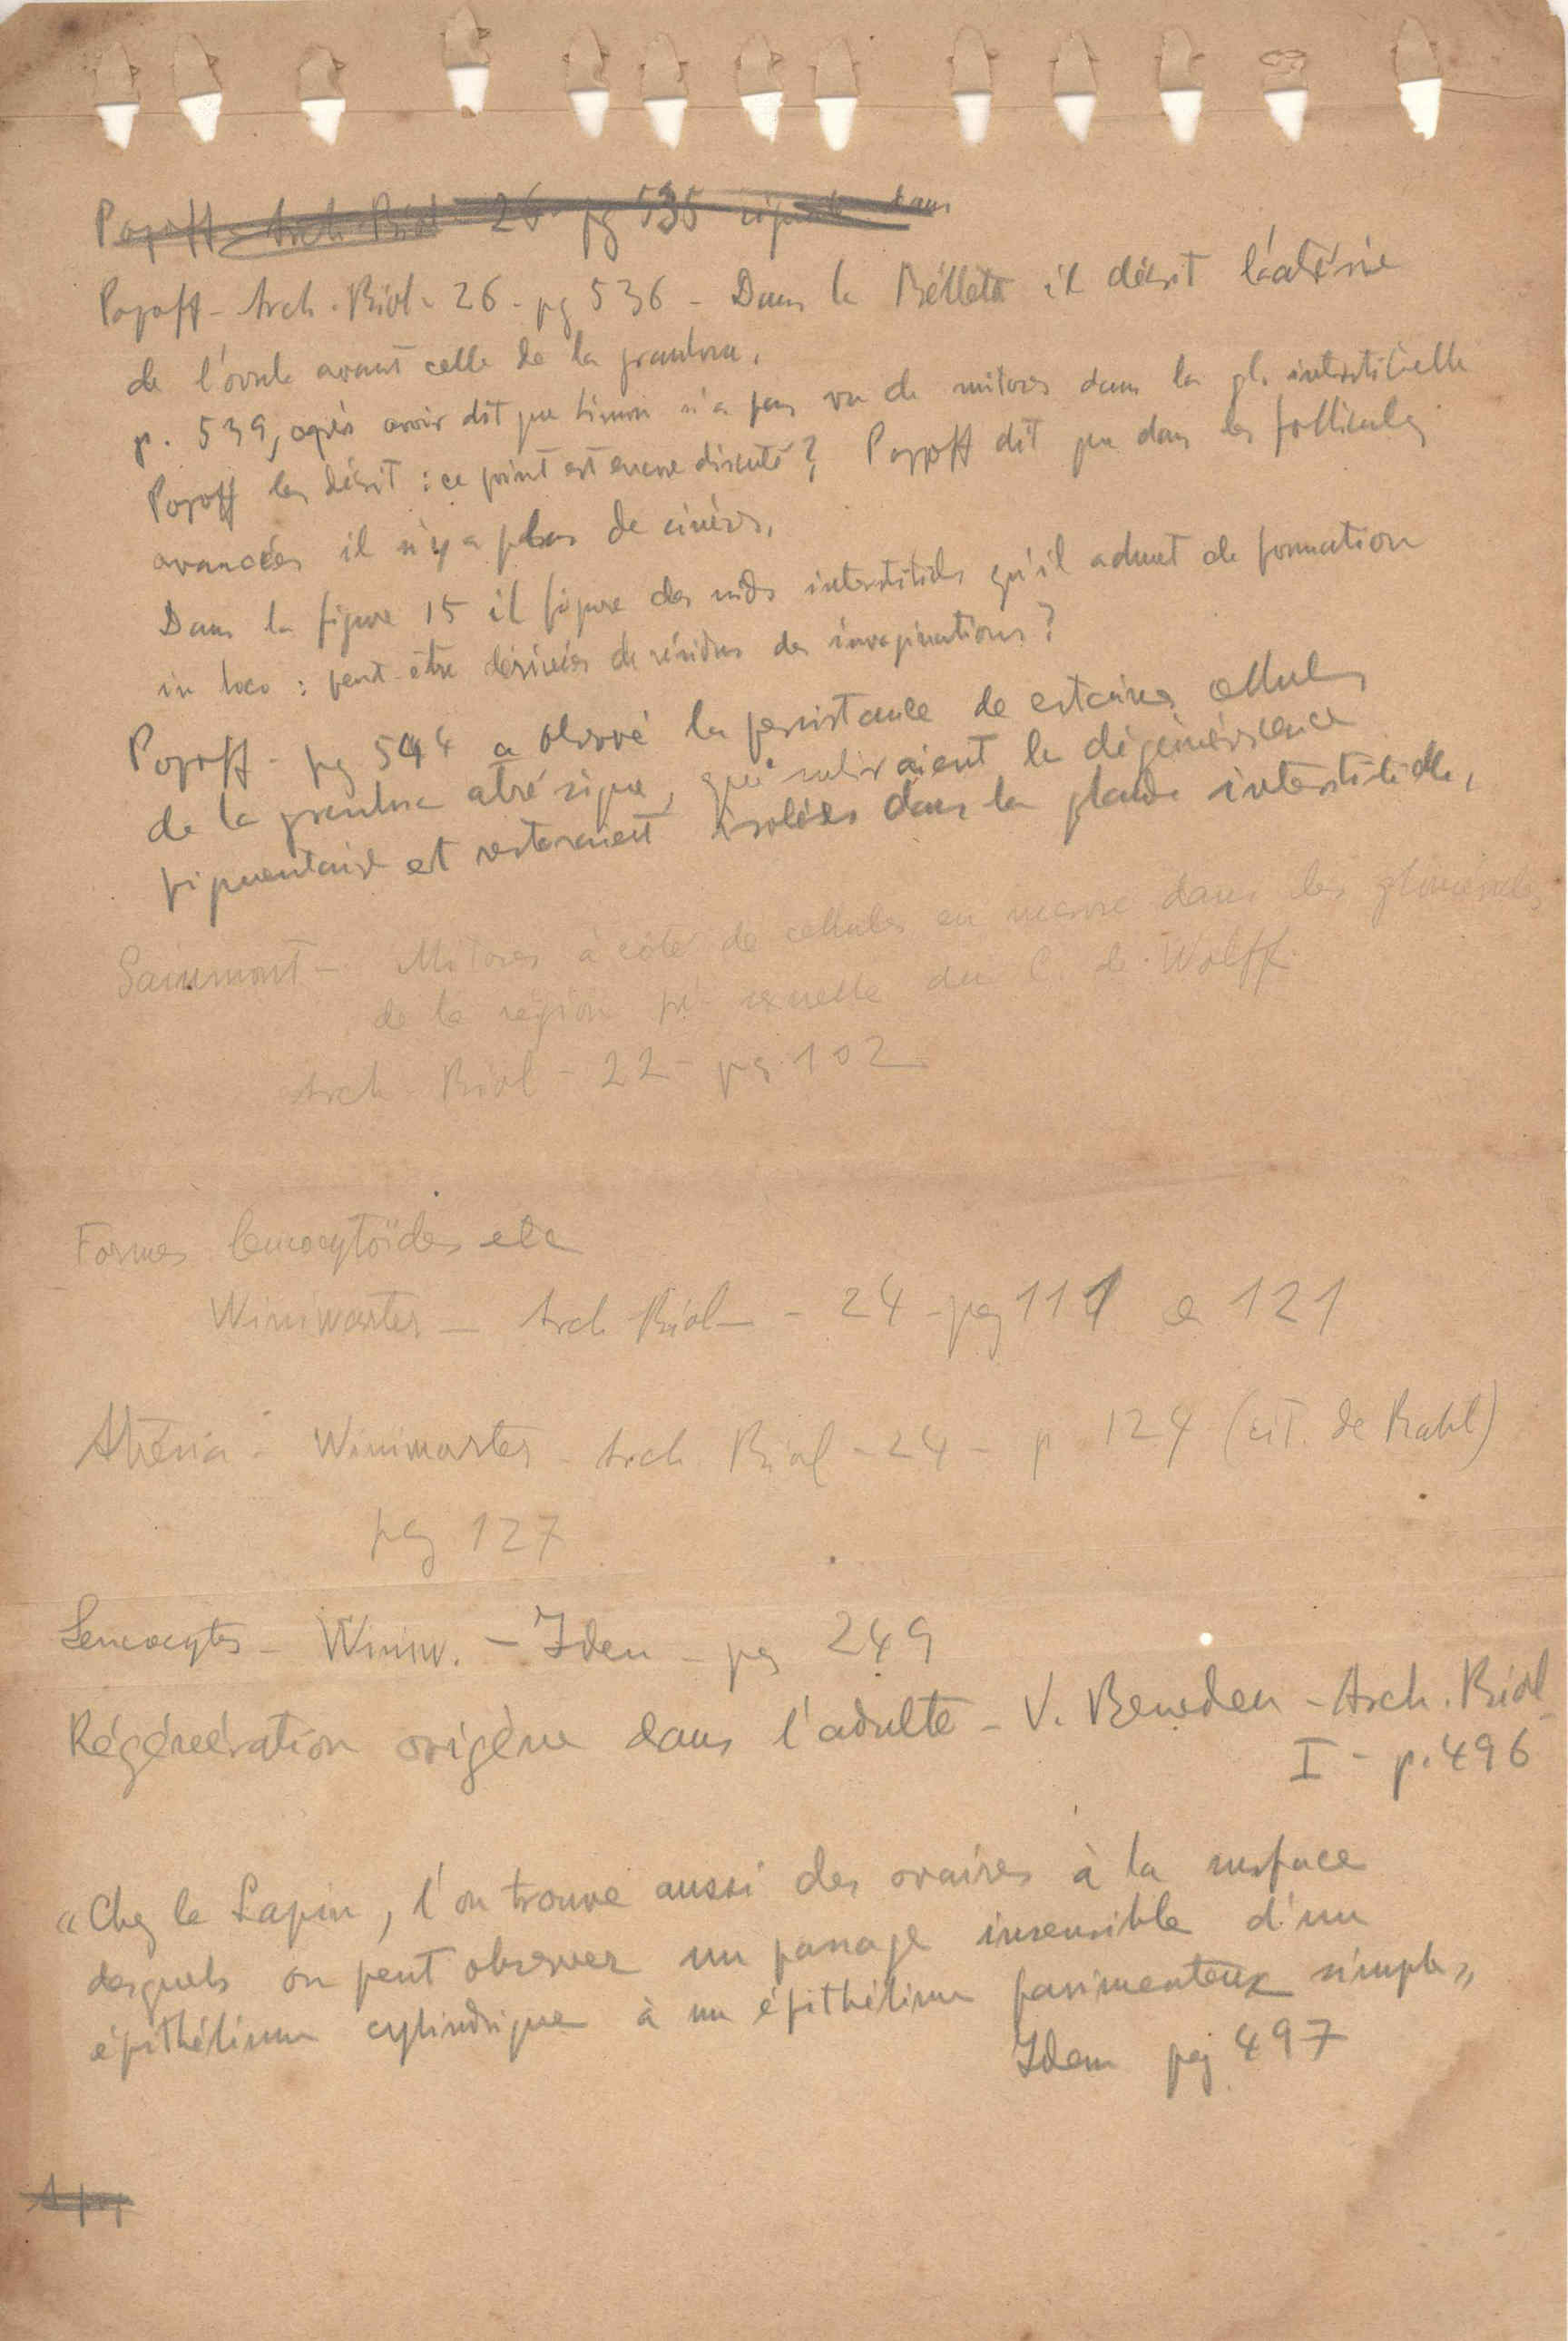 Popoff - Arch Biol 26 - pg 535 dans
Popoff - Arch. Biol - 26 - pg 536 - Dans la Bélleta il décrit l'atrésie
de l'ovule avant celle de la granulosa.
p. 539, après avoir dit que Limon n'a pas vu de mitoses dans la gl. interstitielle
Popoff les décrit : ce point est encore discuté ? Popoff dit que dans les follicules
avancées il n'y a plus de cinèses.
Dans la figure 15 il figure des nids interstitiels qu'il admet de formation
in loco : peut-être dérivées de résidus des invaginations ?
Popoff - pg 544 a observé la persistance de certaines cellules
de la granulosa atrésique, qui subiraient la dégénérescence
pigmentaire et resteraient isolées dans la glande interstitielle.
Sainmont - Mitoses à côté de cellules en nécrose dans les glomérules
de la région pré sexuelle du C. de Wolff.
Arch - Biol - 22 - pg. 102
Formes leucocytoïdes etc
Winiwarter - Arch Biol - - 24 - pg 111 a 121
Atrésia - Winiwarter - Arch. Biol - 24 - p 124 (cit. de Rabl)
pag 127
Leucocytes - Winiw. - Idem - pg 249
Régénération origène dans l'adulte - V. Beneden - Arch. Biol -
I - p. 496
"Chez le Lapin, l'on trouve aussi des ovaires à la surface
desquels on peut observer un passage insensible d'un
épithélium cylindrique à un épithélium pavimenteux simple"
Idem pag 497